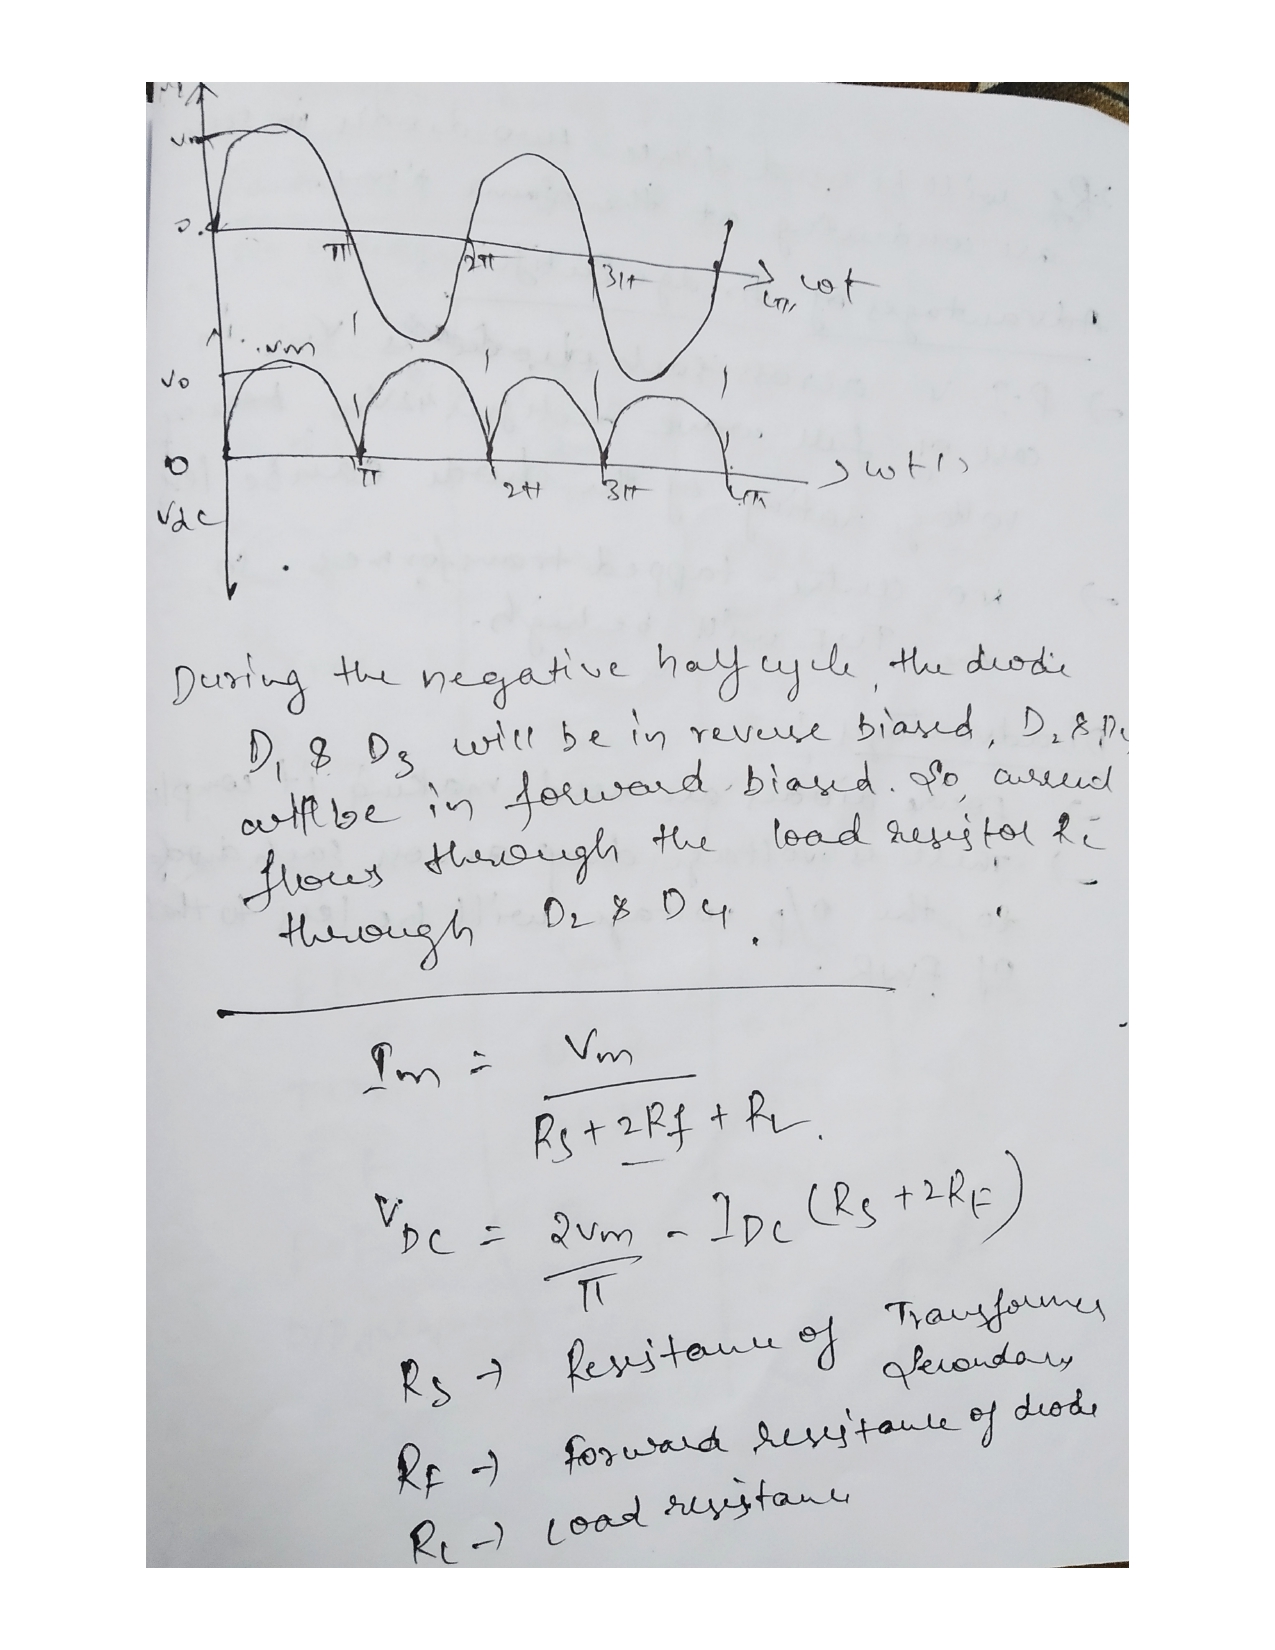 Vm
0
π
2π
3π
4π
ωt
Vm
Vo
0
π
2π
3π
4π
ωt
Vdc
During the negative half cycle, the diode
D₁ & D₃ will be in reverse biased, D₂ & D₄
will be in forward biased. So, current
flows through the load resistor RL
through D₂ & D₄.
Im = Vm / (Rs + 2Rf + RL).
VDC = 2Vm / π - IDC (Rs + 2RF)
Rs → Resistance of Transformer
Secondary
RF → Forward resistance of diode
RL → Load resistance